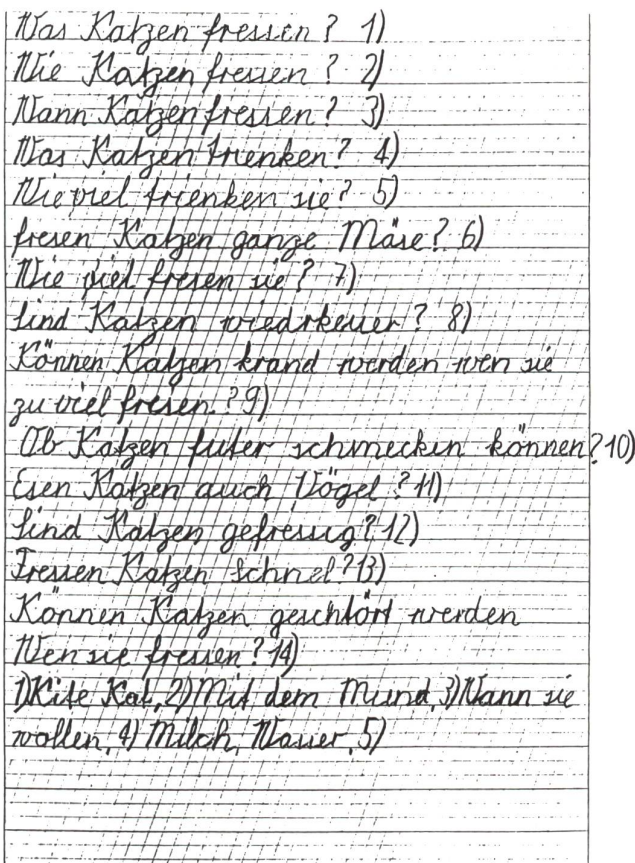 Was Katzen fressen? 1)
Wie Katzen fressen? 2)
Wann Katzen fressen? 3)
Was Katzen trienken? 4)
Wie viel trienken sie? 5)
fresen Katzen ganze Mäse? 6)
Wie viel fresen sie? 7)
Sind Katzen wiedrkeuer? 8)
Können Katzen krand werden wen sie
zu viel fresen? 9)
Ob Katzen futer schmecken können? 10)
Esen Katzen auch Vögel? 11)
Sind Katzen gefressig? 12)
Fressen Katzen Schnel? 13)
Können Katzen geschtört werden
Wen sie fressen? 14)
1) Kite Kat, 2) Mit dem Mund, 3) Wann sie
wollen, 4) Milch, Wasser, 5)